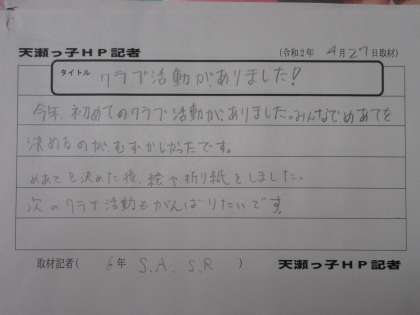 天瀬っ子HP記者
(令和2年 4月27日取材)
タイトル クラブ活動がありました!
今年、初めてのクラブ活動がありました。みんなでめあてを
決めるのが、むずかしかったです。
めあてを決めた後、絵や折り紙をしました。
次のクラブ活動もがんばりたいです。
取材記者( 6年 S.A. S.R )
天瀬っ子HP記者